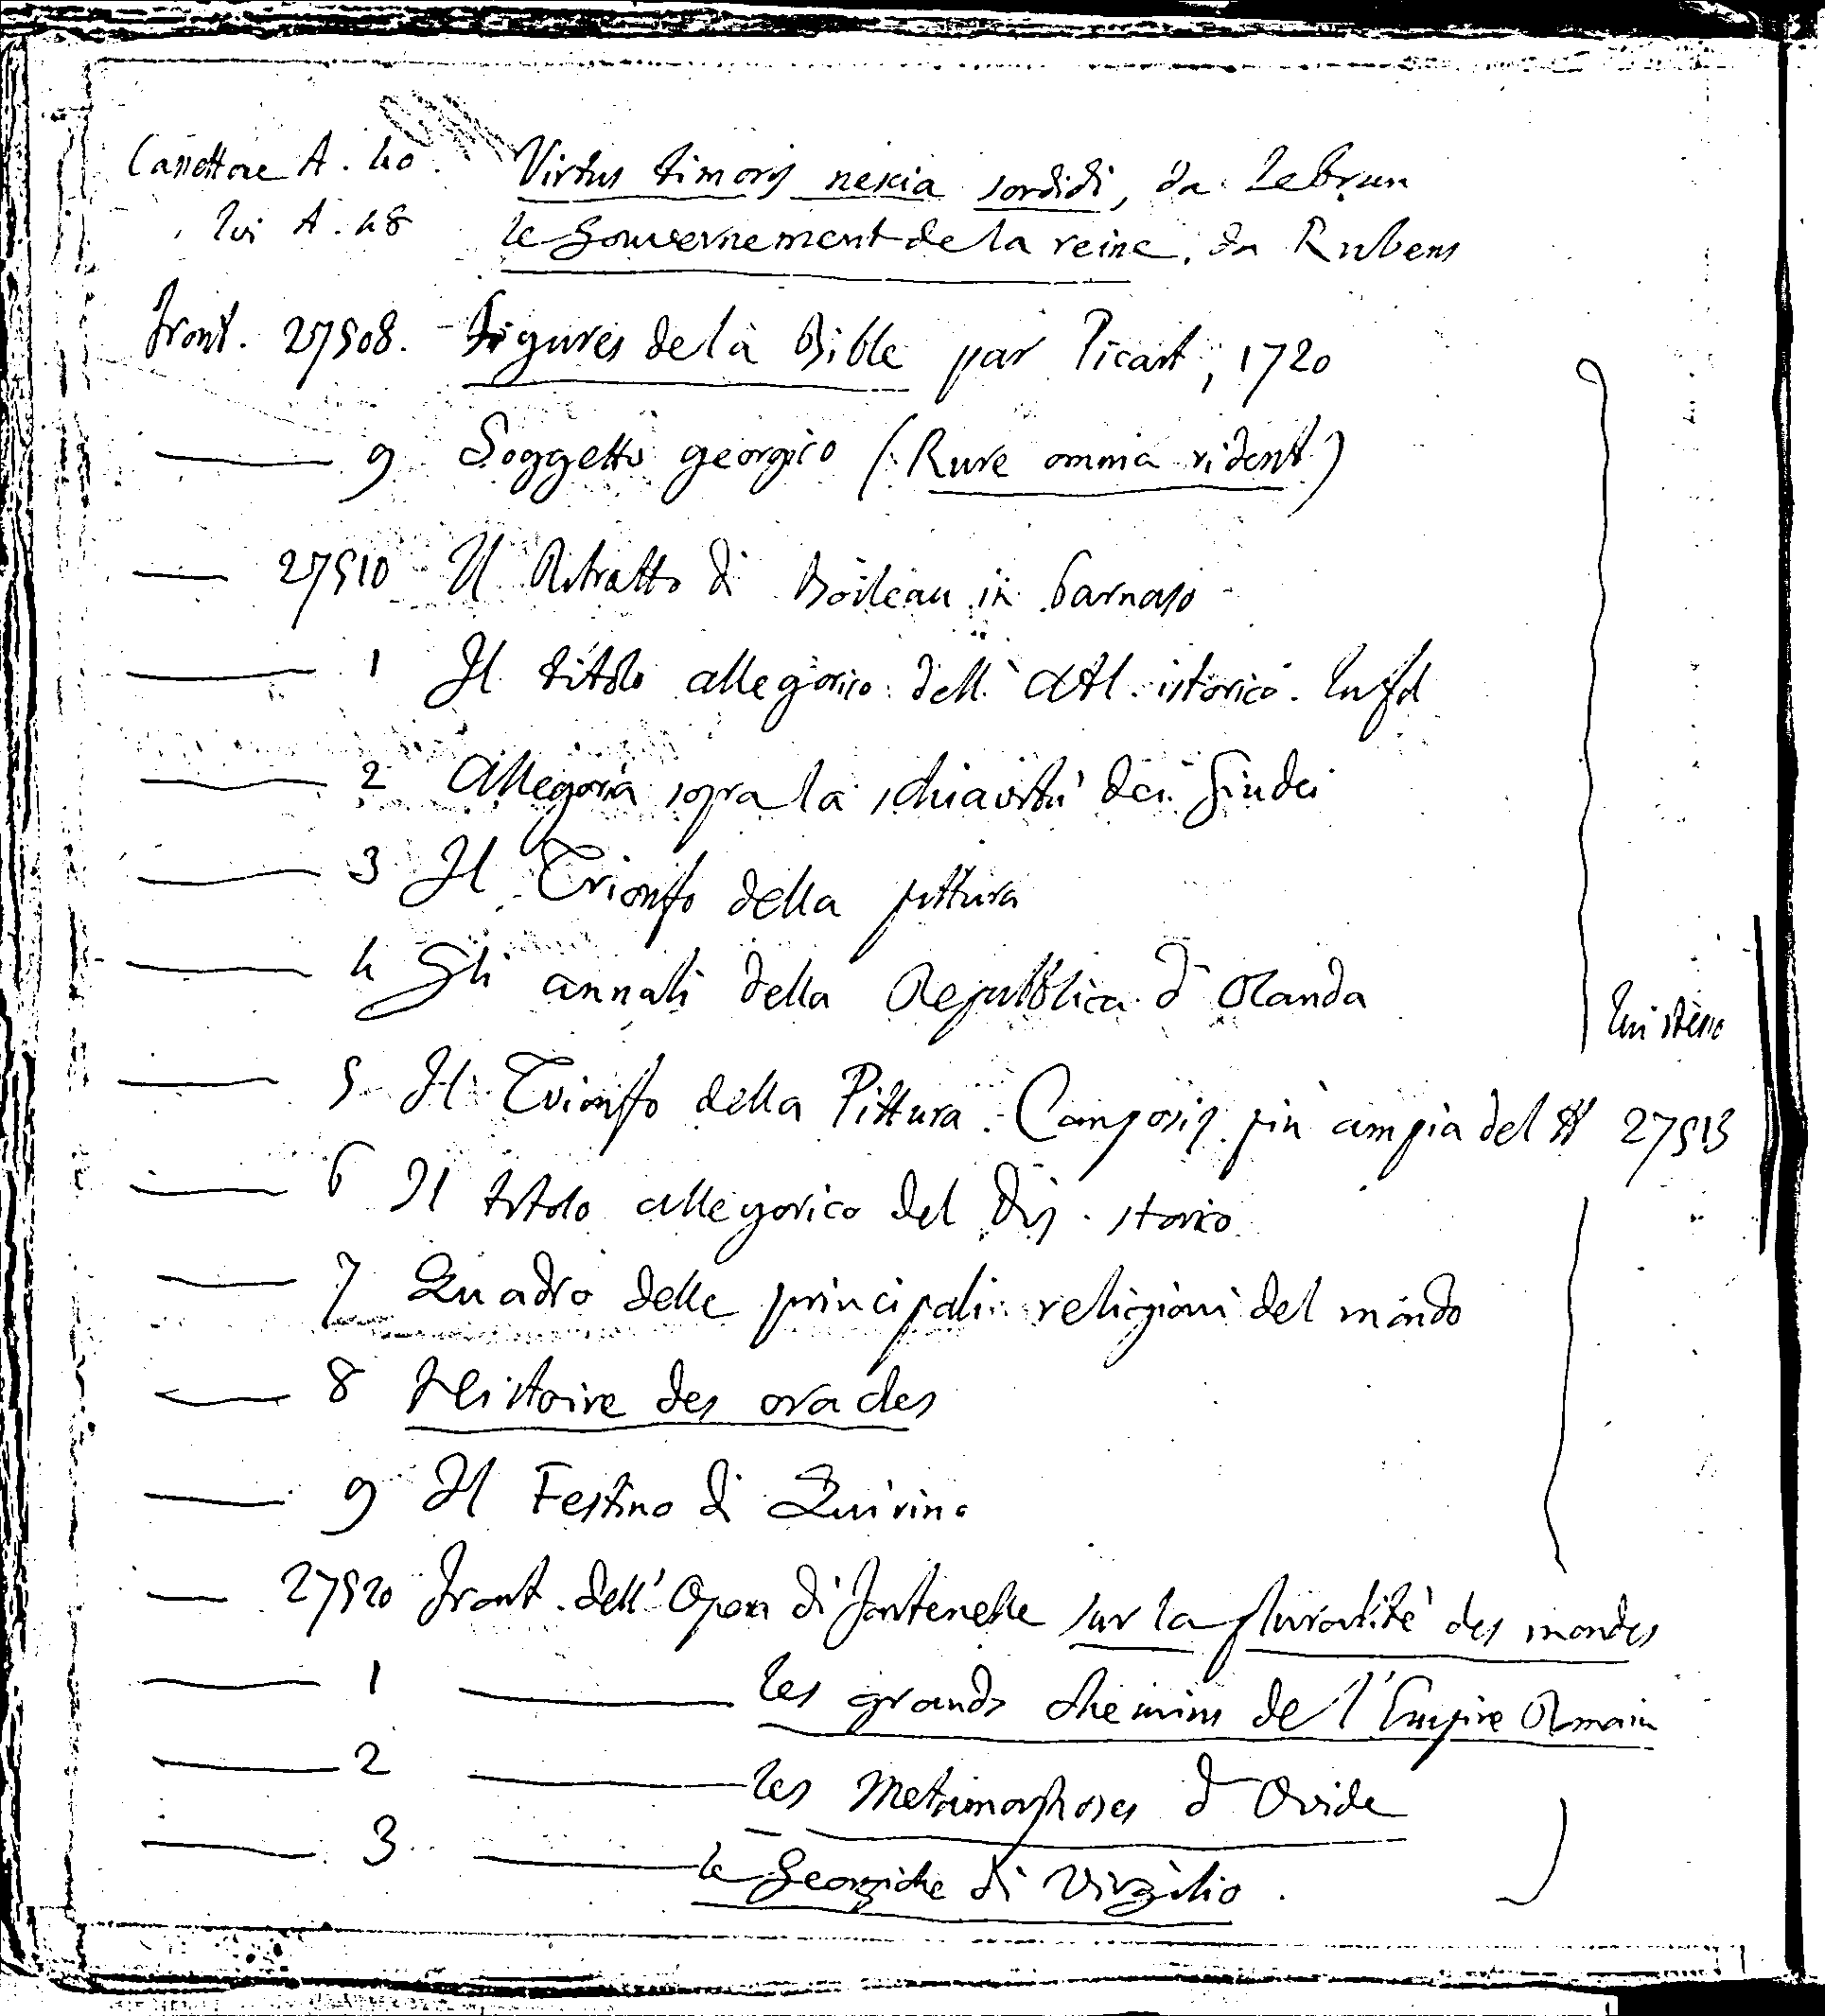 Cassettone A. 40. Virtus timoris nescia sordidi, da Lebrun
Ivi A. 48 le Gouvernement de la reine, da Rubens
Front. 27508. Figures de la Bible par Picart, 1720
9 Soggetto georgico (Rure omnia rident)
27510 Il Ritratto di Boileau in Parnaso
1 Il titolo allegorico dell' Atl. istorico. In fol
2 Allegoria sopra la schiavitù dei Giudei
3 Il Trionfo della pittura
4 Gli annali della Repubblica d'Olanda
Ivi stesso
5 Il Trionfo della Pittura. Composiz. più ampia del N 27513
6 Il titolo allegorico del Diz. storico
7 Quadro delle principali religioni del mondo
8 Histoire des oracles
9 Il Festino di Quirino
27520 Front. dell' Opera di Fontenelle sur la pluralité des mondes
1 les grands chemins de l'Empire Romain
2 les Metamorphoses d'Ovide
3 le Georgiche di Virgilio.